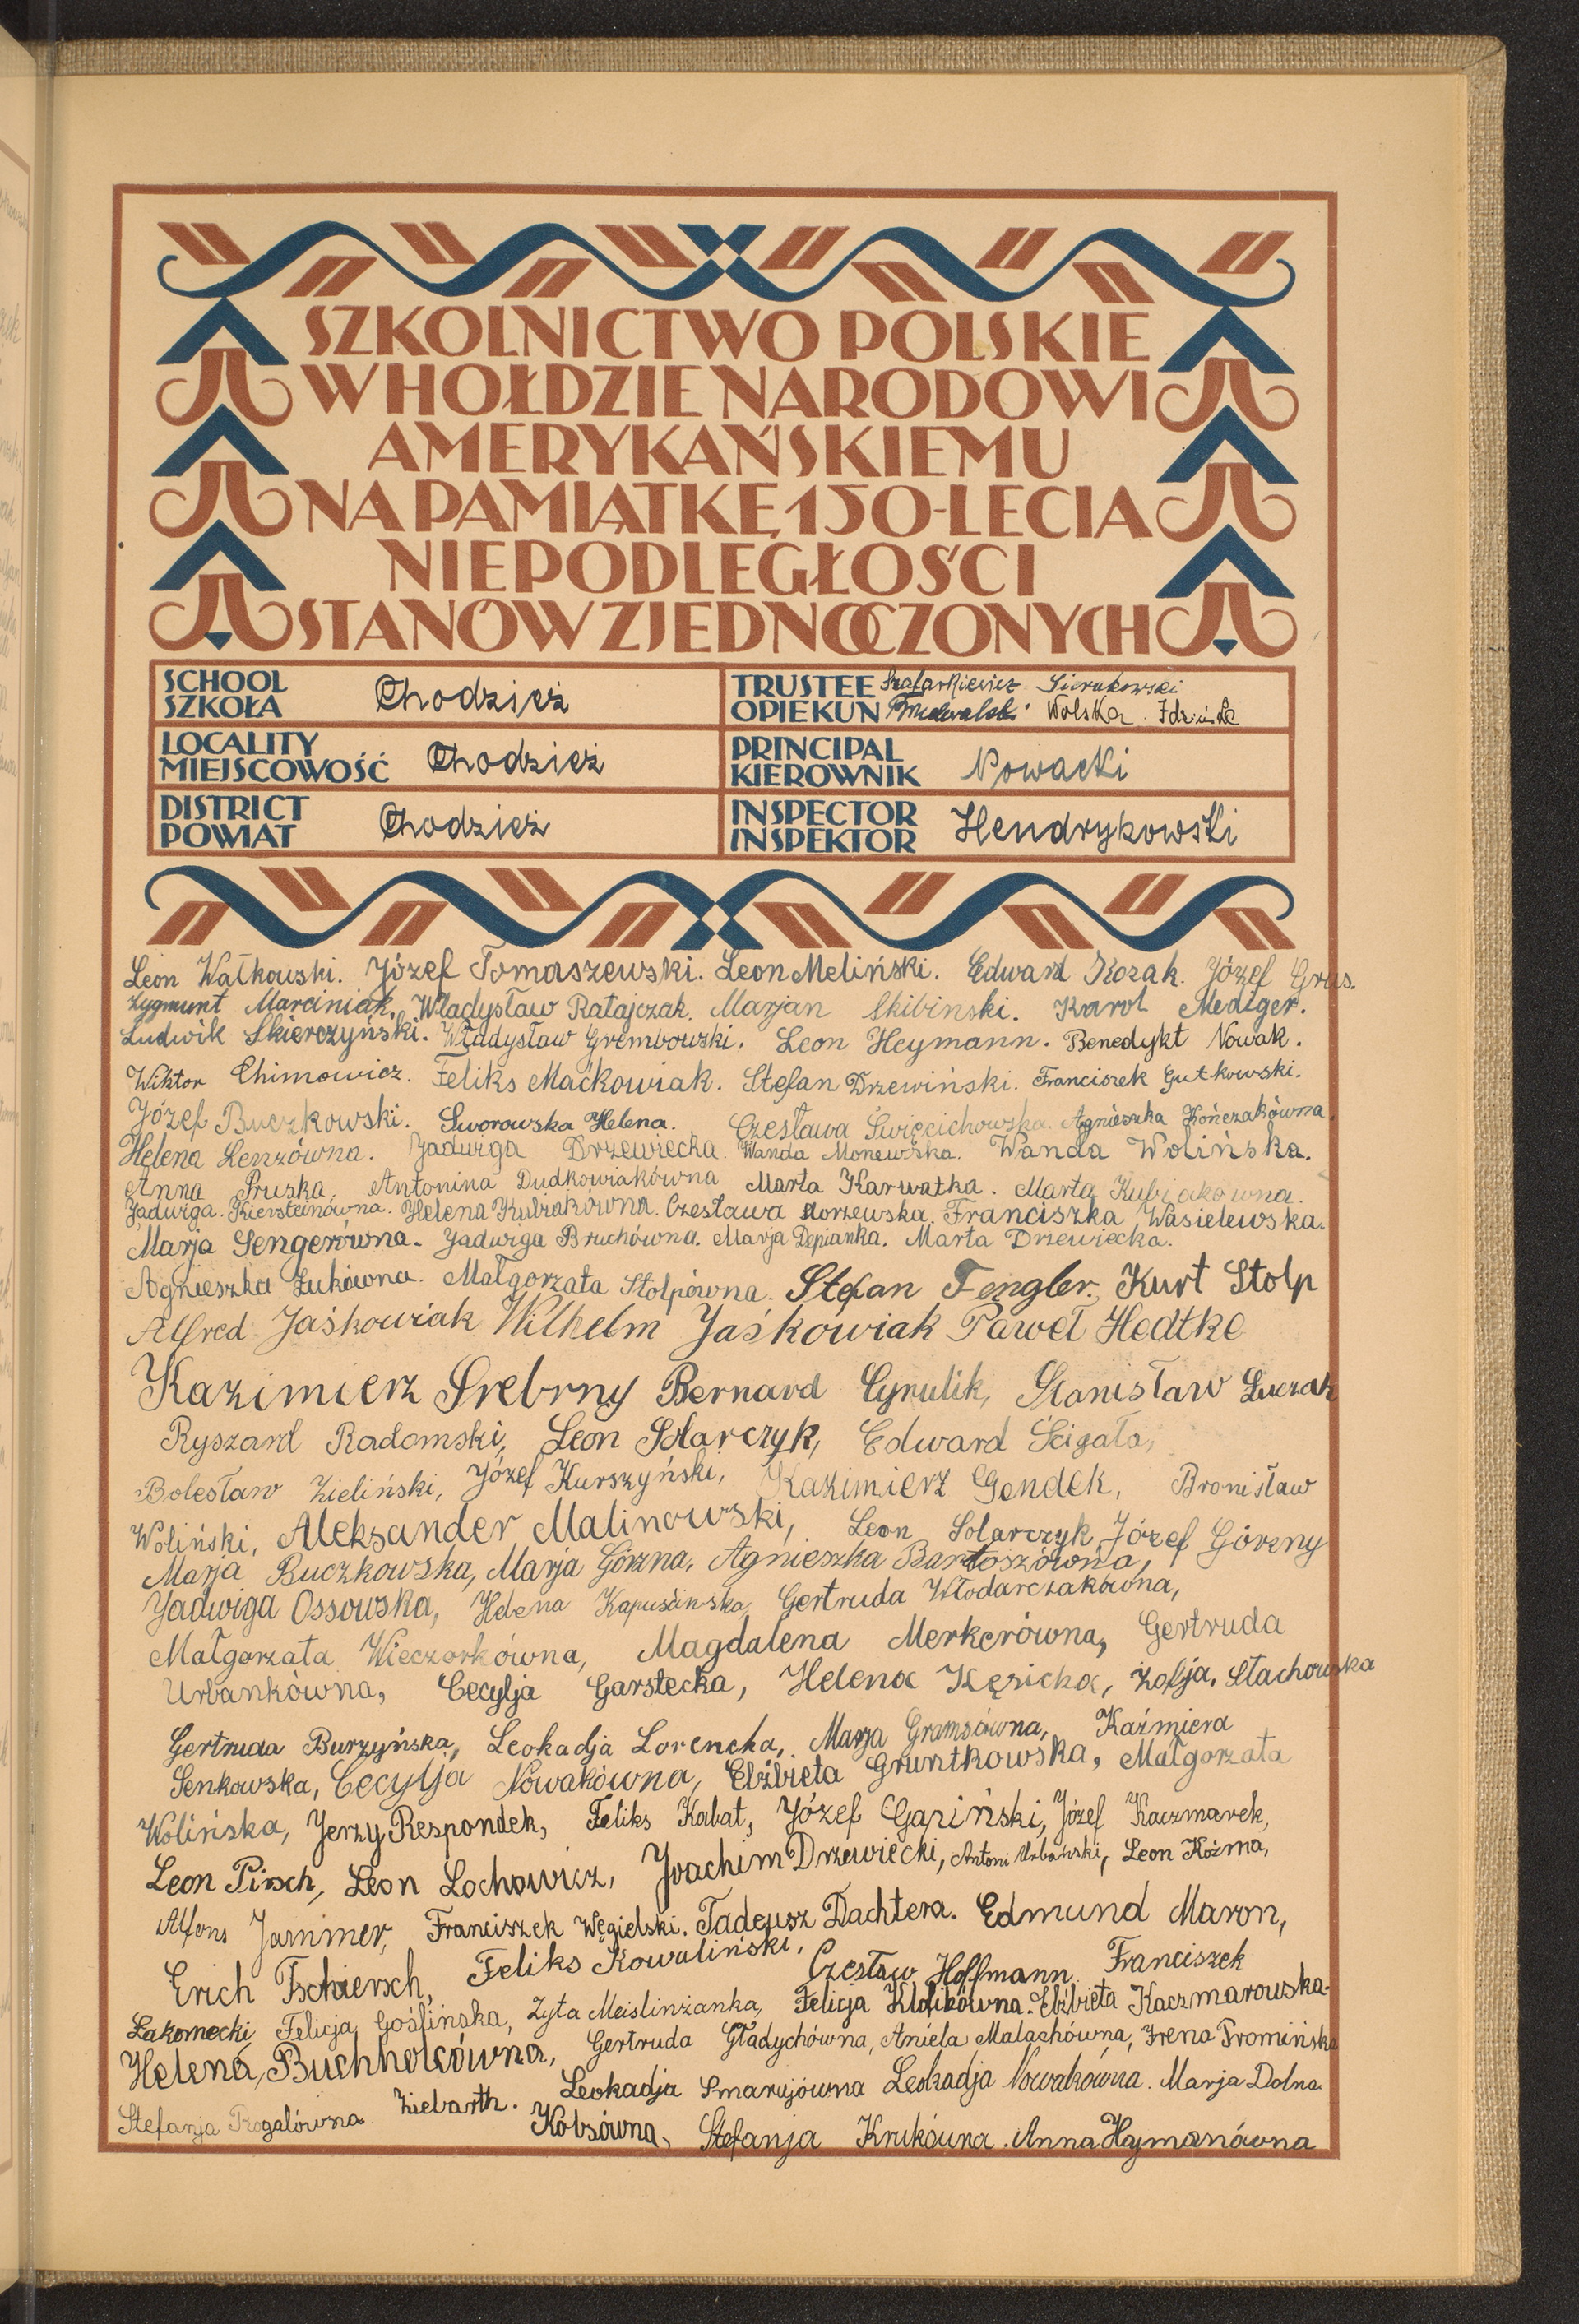 SZKOLNICTWO POLSKIE
W HOŁDZIE NARODOWI
AMERYKAŃSKIEMU
NA PAMIĄTKĘ 150-LECIA
NIEPODLEGŁOŚCI
STANÓW ZJEDNOCZONYCH
SCHOOL
SZKOŁA
Chodzież
TRUSTEE
OPIEKUN
Szafarkiewicz Sierakowski
Wolska
LOCALITY
MIEJSCOWOŚĆ
Chodzież
PRINCIPAL
KIEROWNIK
Nowacki
DISTRICT
POWIAT
Chodzież
INSPECTOR
INSPEKTOR
Hendrykowski
Leon Wałkowski. Józef Tomaszewski. Leon Meliński. Edward Kozak. Józef Grus.
Zygmunt Marciniak. Władysław Ratajczak. Marjan Skibinski. Karol Mediger.
Ludwik Skierczyński. Władysław Grembowski. Leon Heymann. Benedykt Nowak.
Wiktor Chimowicz. Feliks Maćkowiak. Stefan Drzewiński. Franciszek Gutkowski.
Józef Buczkowski. Sworowska Helena. Czesława Święcichowska. Agnieszka Kończakówna.
Helena Lenzówna. Jadwiga Drzewiecka. Wanda Monewska. Wanda Wolińska.
Anna Pruska, Antonina Dudkowiakówna Marta Karwatka. Marta Kubjakówna.
Jadwiga. Kiersteinówna. Helena Kubiakówna. Czesława Gorzewska. Franciszka Wasielewska.
Marja Sengerówna. Jadwiga Bruchówna. Marja Depianka. Marta Drzewiecka.
Agnieszka Żukówna. Małgorzata Stolpówna. Stefan Fengler. Kurt Stolp
Alfred Jaśkowiak Wilhelm Jaśkowiak Paweł Hedtke
Kazimierz Srebrny Bernard Cyrulik, Stanisław Łuczak
Ryszard Radomski, Leon Solarczyk, Edward Ścigała,
Bolesław Zieliński, Józef Kurszyński, Kazimierz Gendek, Bronisław
Woliński, Aleksander Malinowski, Leon Solarczyk, Józef Górzny
Marja Buczkowska, Marja Górzna, Agnieszka Bartoszówna,
Jadwiga Ossowska, Helena Kapuścińska, Gertruda Włodarczakówna,
Małgorzata Wieczorkówna, Magdalena Merkerówna, Gertruda
Urbankówna, Cecylja Garstecka, Helena Kęsicka, Zofja, Stachowska
Gertruda Burzyńska, Leokadja Lorencka, Marja Gramsówna, Kaźmiera
Senkowska, Cecylja Nowakówna, Elżbieta Gruntkowska, Małgorzata
Wolińska, Jerzy Respondek, Feliks Kabat, Józef Gapiński, Józef Kaczmarek,
Leon Pirsch, Leon Lochowicz, Joachim Drzewiecki, Antoni Urbański, Leon Koźma,
Alfons Jammer, Franciszek Węgielski. Tadeusz Dachtera. Edmund Maron,
Erich Tschiersch, Feliks Kowaliński, Czesław Hoffmann Franciszek
Łakomecki Felicja Goślińska, Zyta Meislinżanka, Felicja Klofikówna. Elżbieta Kaczmarowska.
Helena, Buchholcówna, Gertruda Gładychówna, Aniela Malachówna, Irena Promińska
Ziebarth. Leokadja Smarujówna Leokadja Nowakówna. Marja Dolna
Stefanja Rogalówna Kobsówna, Stefanja Krukówna. Anna Hajmanówna